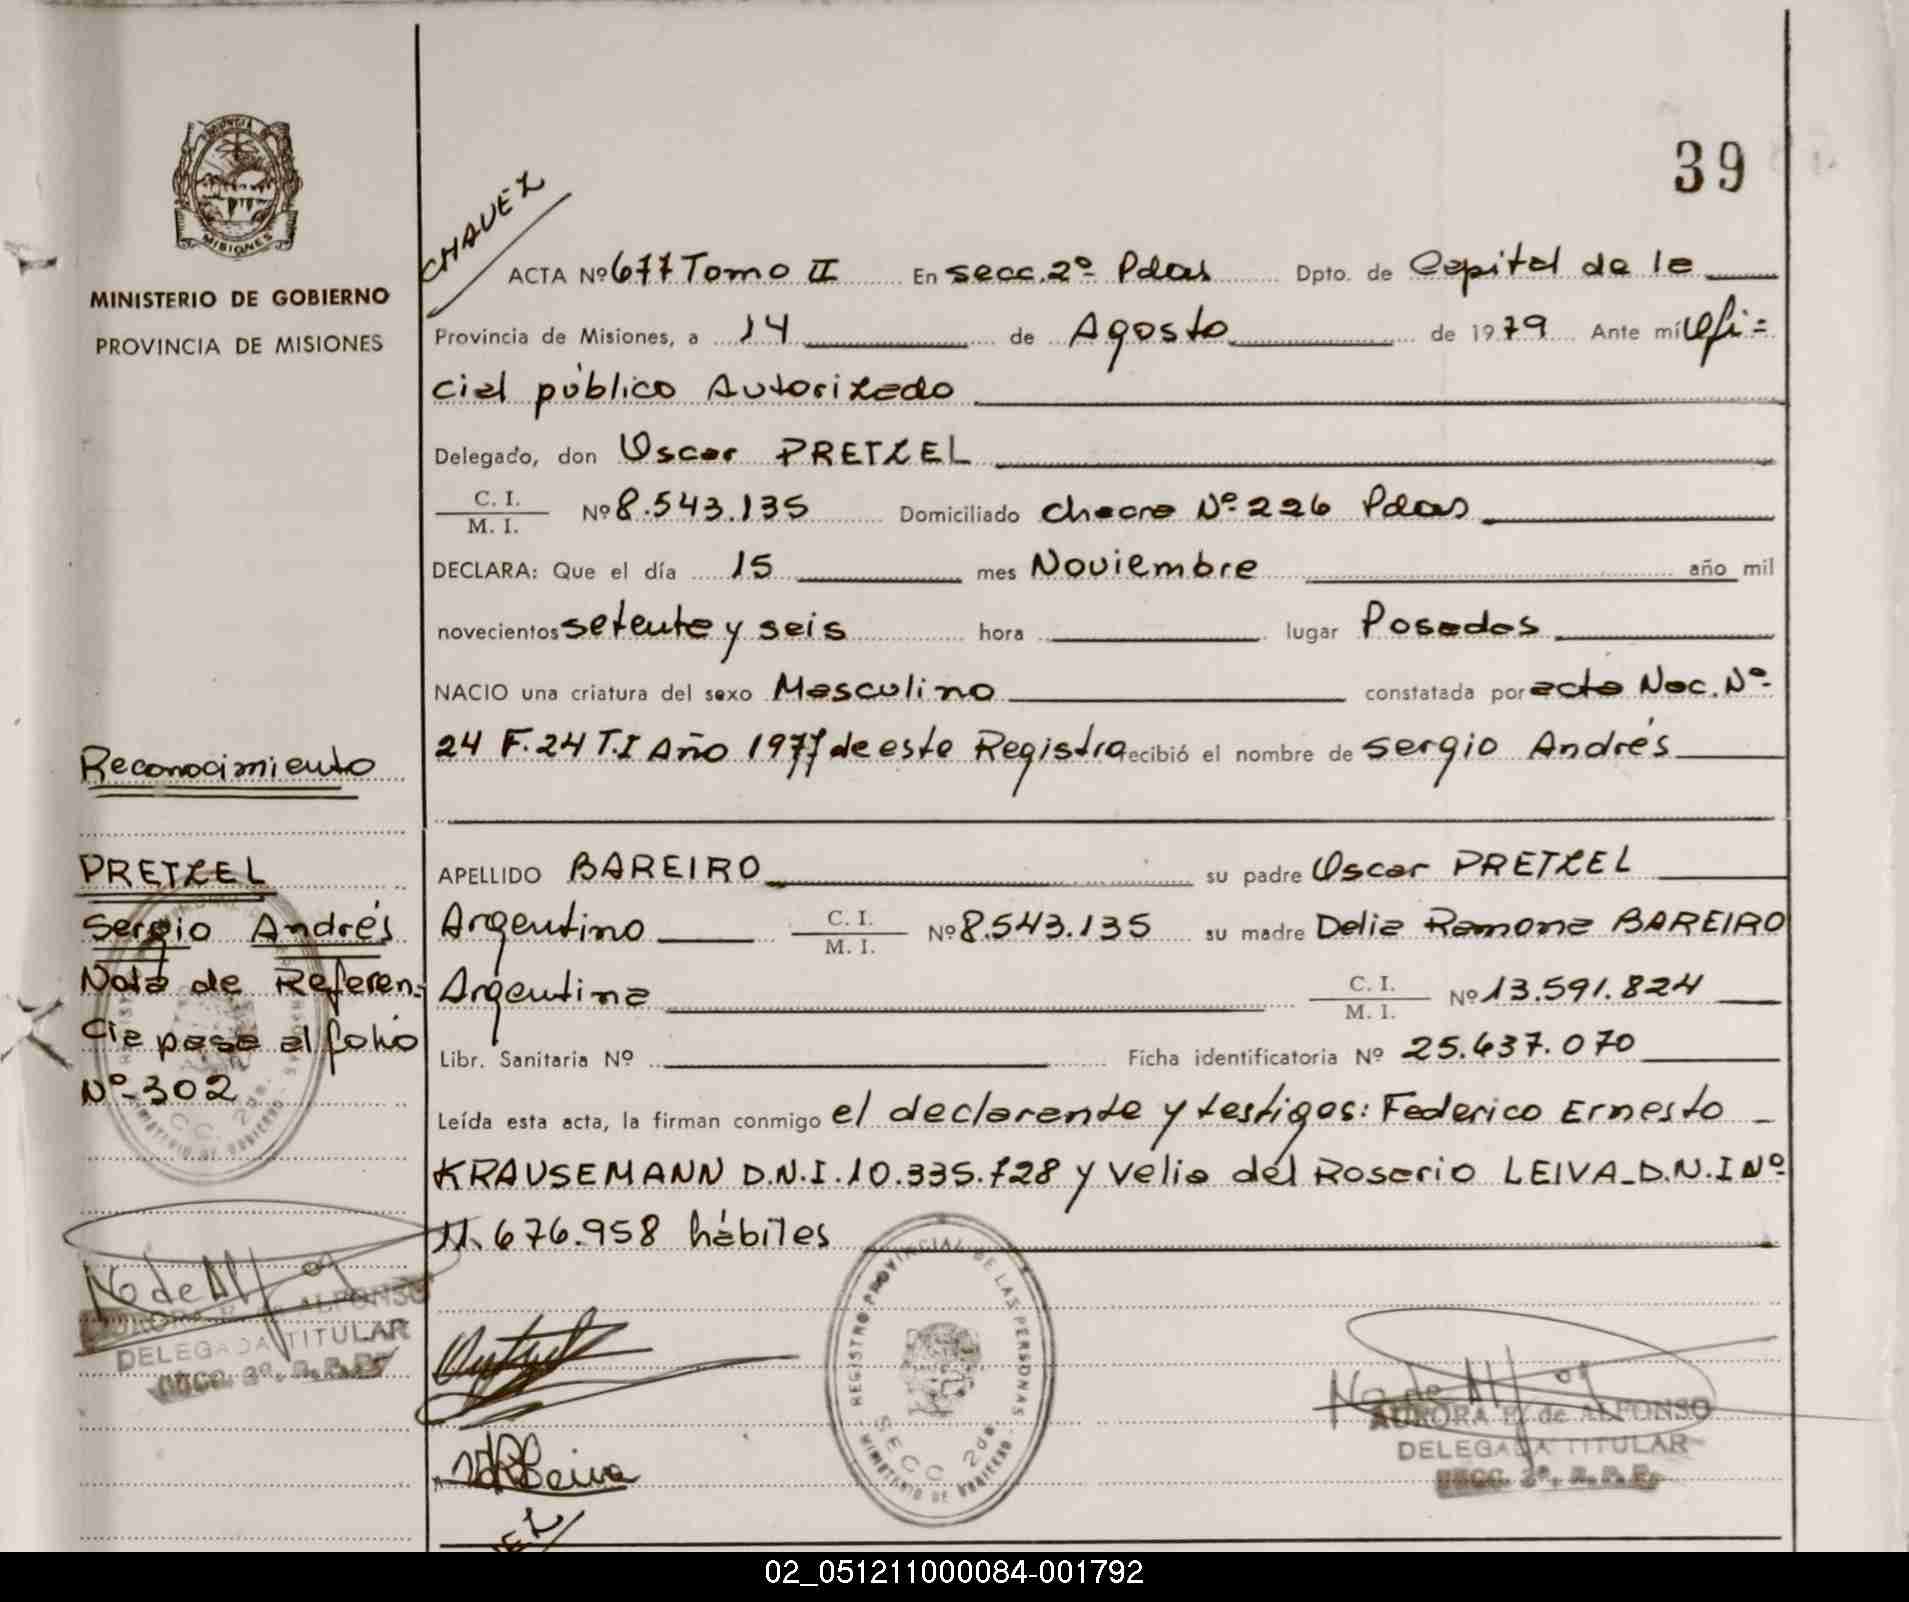 39
PROVINCIA DE
MISIONES
MINISTERIO DE GOBIERNO
PROVINCIA DE MISIONES
CHAVEZ
ACTA Nº 677 Tomo II En secc. 2º Pdas Dpto. de Capital de la
Provincia de Misiones, a 14 de Agosto de 1979 Ante mí Ofi=
cial público Autorizado
Delegado, don Oscar PRETZEL
C. I.
M. I. Nº 8.543.135 Domiciliado Chacra Nº 226 Pdas
DECLARA: Que el día 15 mes Noviembre año mil
novecientos setenta y seis hora lugar Posadas
NACIO una criatura del sexo Masculino constatada por acta Nac. Nº
24 F. 24 T.I Año 1977 de este Registro recibió el nombre de Sergio Andrés
APELLIDO BAREIRO su padre Oscar PRETZEL
Argentino C. I.
M. I. Nº 8.543.135 su madre Delia Ramona BAREIRO
Argentina C. I.
M. I. Nº 13.591.824
Libr. Sanitaria Nº Ficha identificatoria Nº 25.637.070
Leída esta acta, la firman conmigo el declarante y testigos: Federico Ernesto
KRAUSEMANN D.N.I. 10.335.728 y Velia del Rosario LEIVA_D.N.I Nº
11.676.958 hábiles
Reconocimiento
PRETZEL
Sergio Andrés
Nota de Referen=
cia pasa al folio
Nº 302
AURORA de ALFONSO
DELEGADA TITULAR
SECC. 2º, R.P.P.
REGISTRO PROVINCIAL DE LAS PERSONAS
SECC 2da.
MINISTERIO DE GOBIERNO
AURORA de ALFONSO
DELEGADA TITULAR
SECC. 2º, R.P.P.
02_051211000084-001792